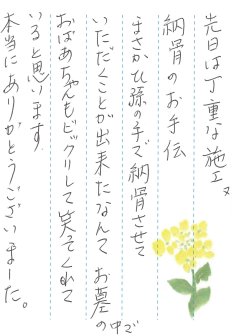 先日は丁重な施工又
納骨のお手伝
まさかひ孫の手で納骨させて
いただくことが出来たなんて お墓の中で
おばあちゃんもビックリして笑ってくれて
いると思います
本当にありがとうございました。